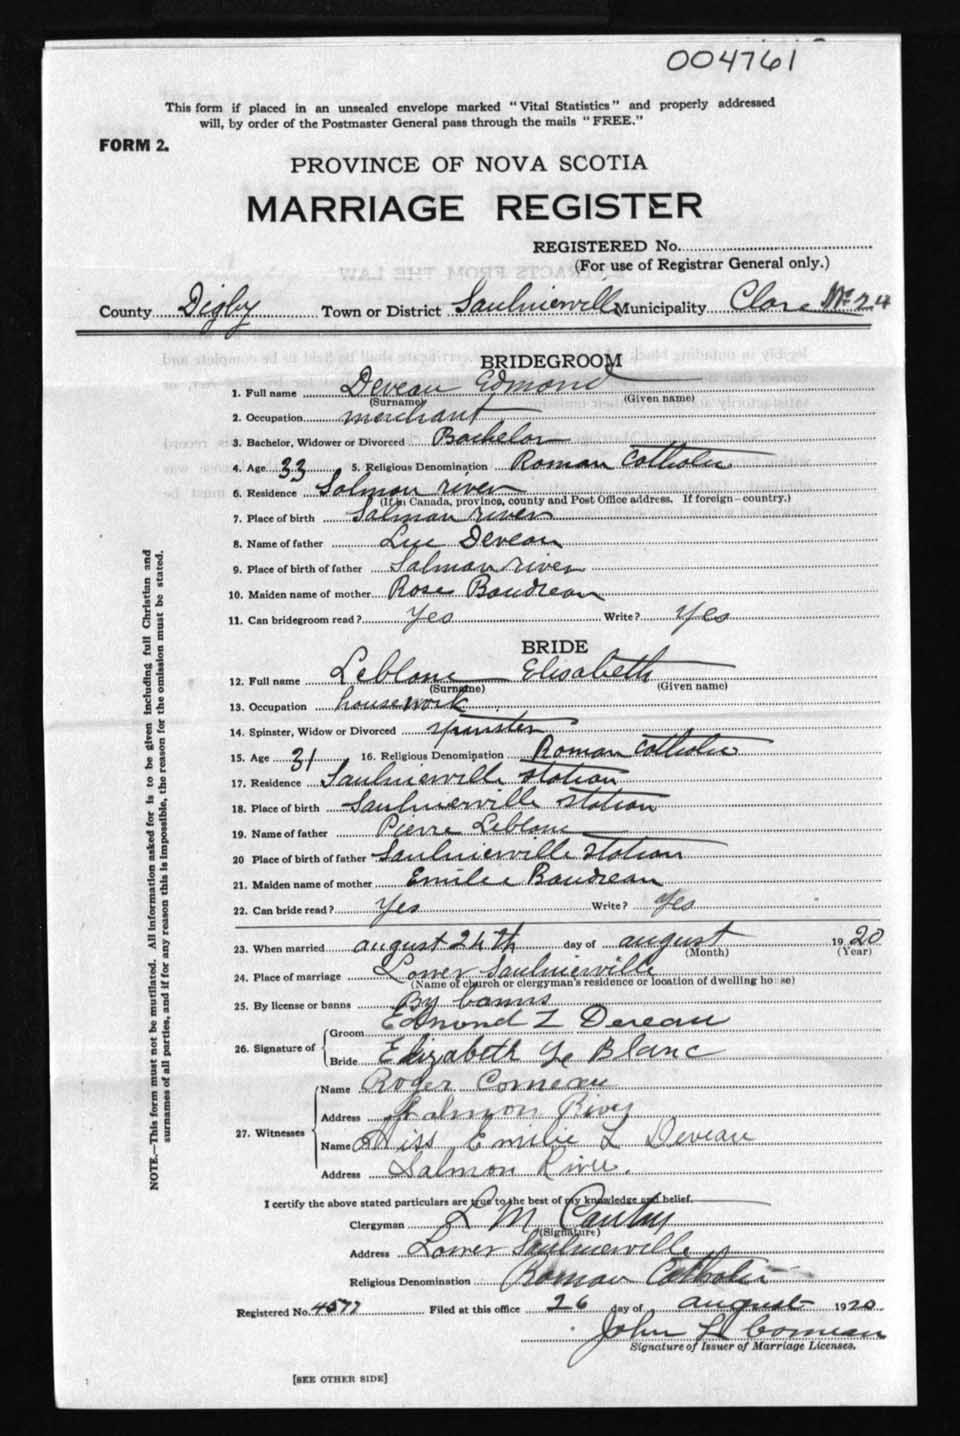 004761
This form if placed in an unsealed envelope marked "Vital Statistics" and properly addressed
will, by order of the Postmaster General pass through the mails "FREE."
FORM 2.
PROVINCE OF NOVA SCOTIA
MARRIAGE REGISTER
REGISTERED No.
(For use of Registrar General only.)
County Digby Town or District Saulnierville Municipality Clare No 24
BRIDEGROOM
1. Full name Deveau Edmond
(Surname) (Given name)
2. Occupation merchant
3. Bachelor, Widower or Divorced Bachelor
4. Age 33 5. Religious Denomination Roman Catholic
6. Residence Salmon river
(If in Canada, province, county and Post Office address. If foreign-country.)
7. Place of birth Salmon river
8. Name of father Luc Deveau
9. Place of birth of father Salmon river
10. Maiden name of mother Rose Boudreau
11. Can bridegroom read? Yes Write? Yes
BRIDE
12. Full name Leblanc Elisabeth
(Surname) (Given name)
13. Occupation housework
14. Spinster, Widow or Divorced spinster
15. Age 31 16. Religious Denomination Roman Catholic
17. Residence Saulnierville station
18. Place of birth Saulnierville station
19. Name of father Pierre Leblanc
20 Place of birth of father Saulnierville station
21. Maiden name of mother Emilie Boudreau
22. Can bride read? Yes Write? Yes
23. When married august 24th day of august 1920
(Month) (Year)
24. Place of marriage Lower Saulnierville
(Name of church or clergyman's residence or location of dwelling house)
25. By license or banns By banns
26. Signature of
Groom Edmond L Deveau
Bride Elizabeth Le Blanc
27. Witnesses
Name Roger Comeau
Address Salmon River
Name Miss Emilie L Deveau
Address Salmon River.
I certify the above stated particulars are true to the best of my knowledge and belief.
Clergyman L M
(Signature)
Address Lower Saulnierville
Religious Denomination Roman Catholic
Registered No. 4577 Filed at this office 26 day of august 1920
John Comeau
Signature of Issuer of Marriage Licenses.
[SEE OTHER SIDE]
NOTE.—This form must not be mutilated. All information asked for is to be given including full Christian and
surnames of all parties, and if for any reason this is impossible, the reason for the omission must be stated.